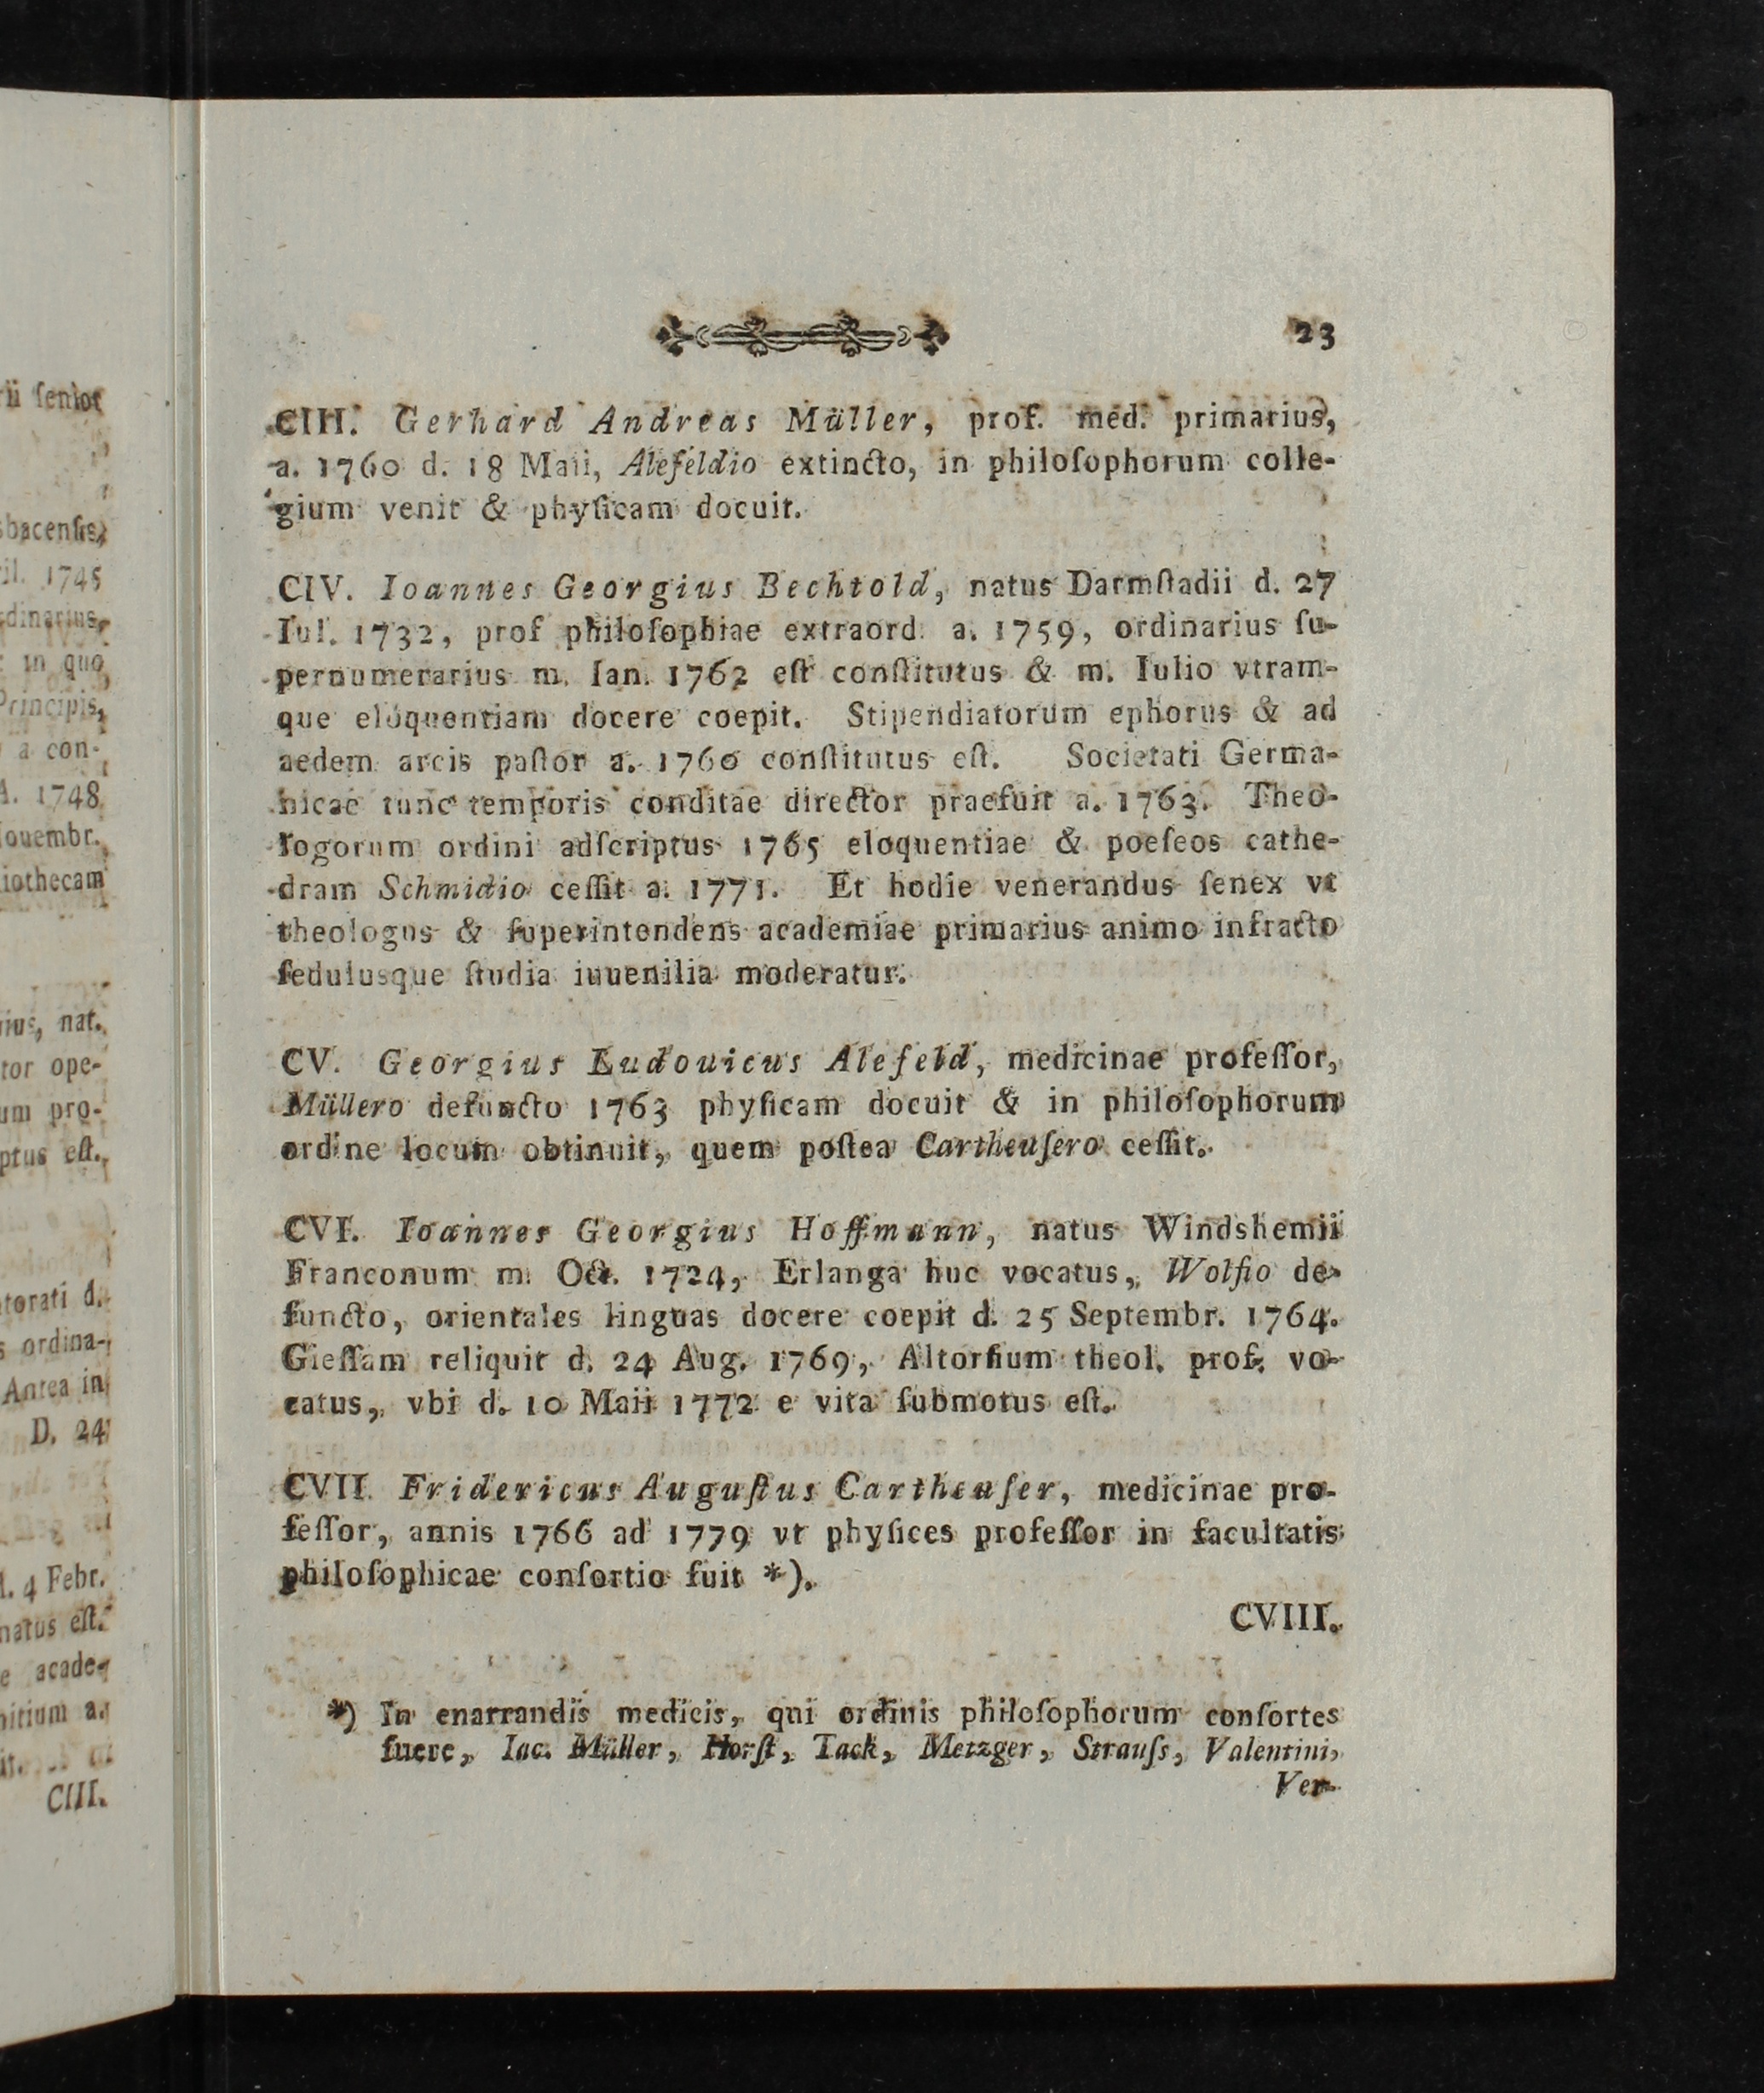 rii ſenior
sbacenſis,
il. 1745
rdinarius,
in quo
Principis,
a con-
A. 1748
Nouembr.
liothecam
nat.
tor ope-
um pro-
ptus eſt.
ctorati d.
s ordina-
Antea in
D. 24
d. 4 Febr.
natus eſt.
e acade-
nitium a.
CIII.
23
CIII. Gerhard Andreas Müller, prof. med. primarius,
a. 1760 d. 18 Maii, Alefeldio extincto, in philoſophorum colle-
gium venit & phyſicam docuit.
CIV. Ioannes Georgius Bechtold, natus Darmſtadii d. 27
Iul. 1732, prof philoſophiae extraord. a. 1759, ordinarius ſu-
pernumerarius m. Ian. 1762 eſt conſtitutus & m. Iulio vtram-
que eloquentiam docere coepit. Stipendiatorum ephorus & ad
aedem arcis paſtor a. 1760 conſtitutus eſt. Societati Germa-
nicae tunc temporis conditae director praefuit a. 1763. Theo-
logorum ordini adſcriptus 1765 eloquentiae & poeſeos cathe-
dram Schmidio ceſſit a. 1771. Et hodie venerandus ſenex vt
theologus & ſuperintendens academiae primarius animo infracto
ſedulusque ſtudia iuuenilia moderatur.
CV. Georgius Ludouicus Alefeld, medicinae profeſſor,
Müllero defuncto 1763 phyſicam docuit & in philoſophorum
ordine locum obtinuit, quem poſtea Cartheuſero ceſſit.
CVI. Ioannes Georgius Hoffmann, natus Windshemii
Franconum m. Oct. 1724, Erlanga huc vocatus, Wolfio de-
functo, orientales linguas docere coepit d. 25 Septembr. 1764.
Gieſſam reliquit d. 24 Aug. 1769, Altorfium theol. prof. vo-
catus, vbi d. 10 Maii 1772 e vita ſubmotus eſt.
CVII. Fridericus Auguſtus Cartheuſer, medicinae pro-
feſſor, annis 1766 ad 1779 vt phyſices profeſſor in facultatis
philoſophicae conſortio fuit *).
CVIII.
*) In enarrandis medicis, qui ordinis philoſophorum conſortes
fuere, Iac. Müller, Horſt, Tack, Metzger, Strauſs, Valentini,
Ver-